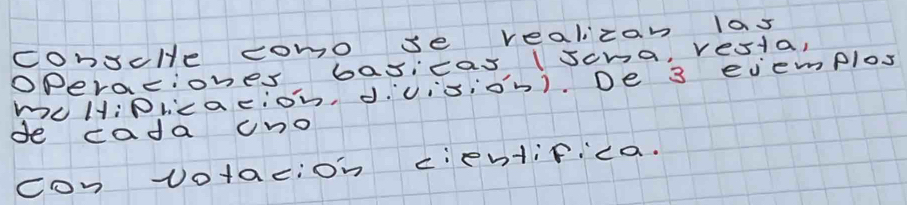 consulte como se realizan las
operaciones basicas (suma, resta,
multiplicación, división). De 3 ejemplos
de cada uno
con notación cientifica.